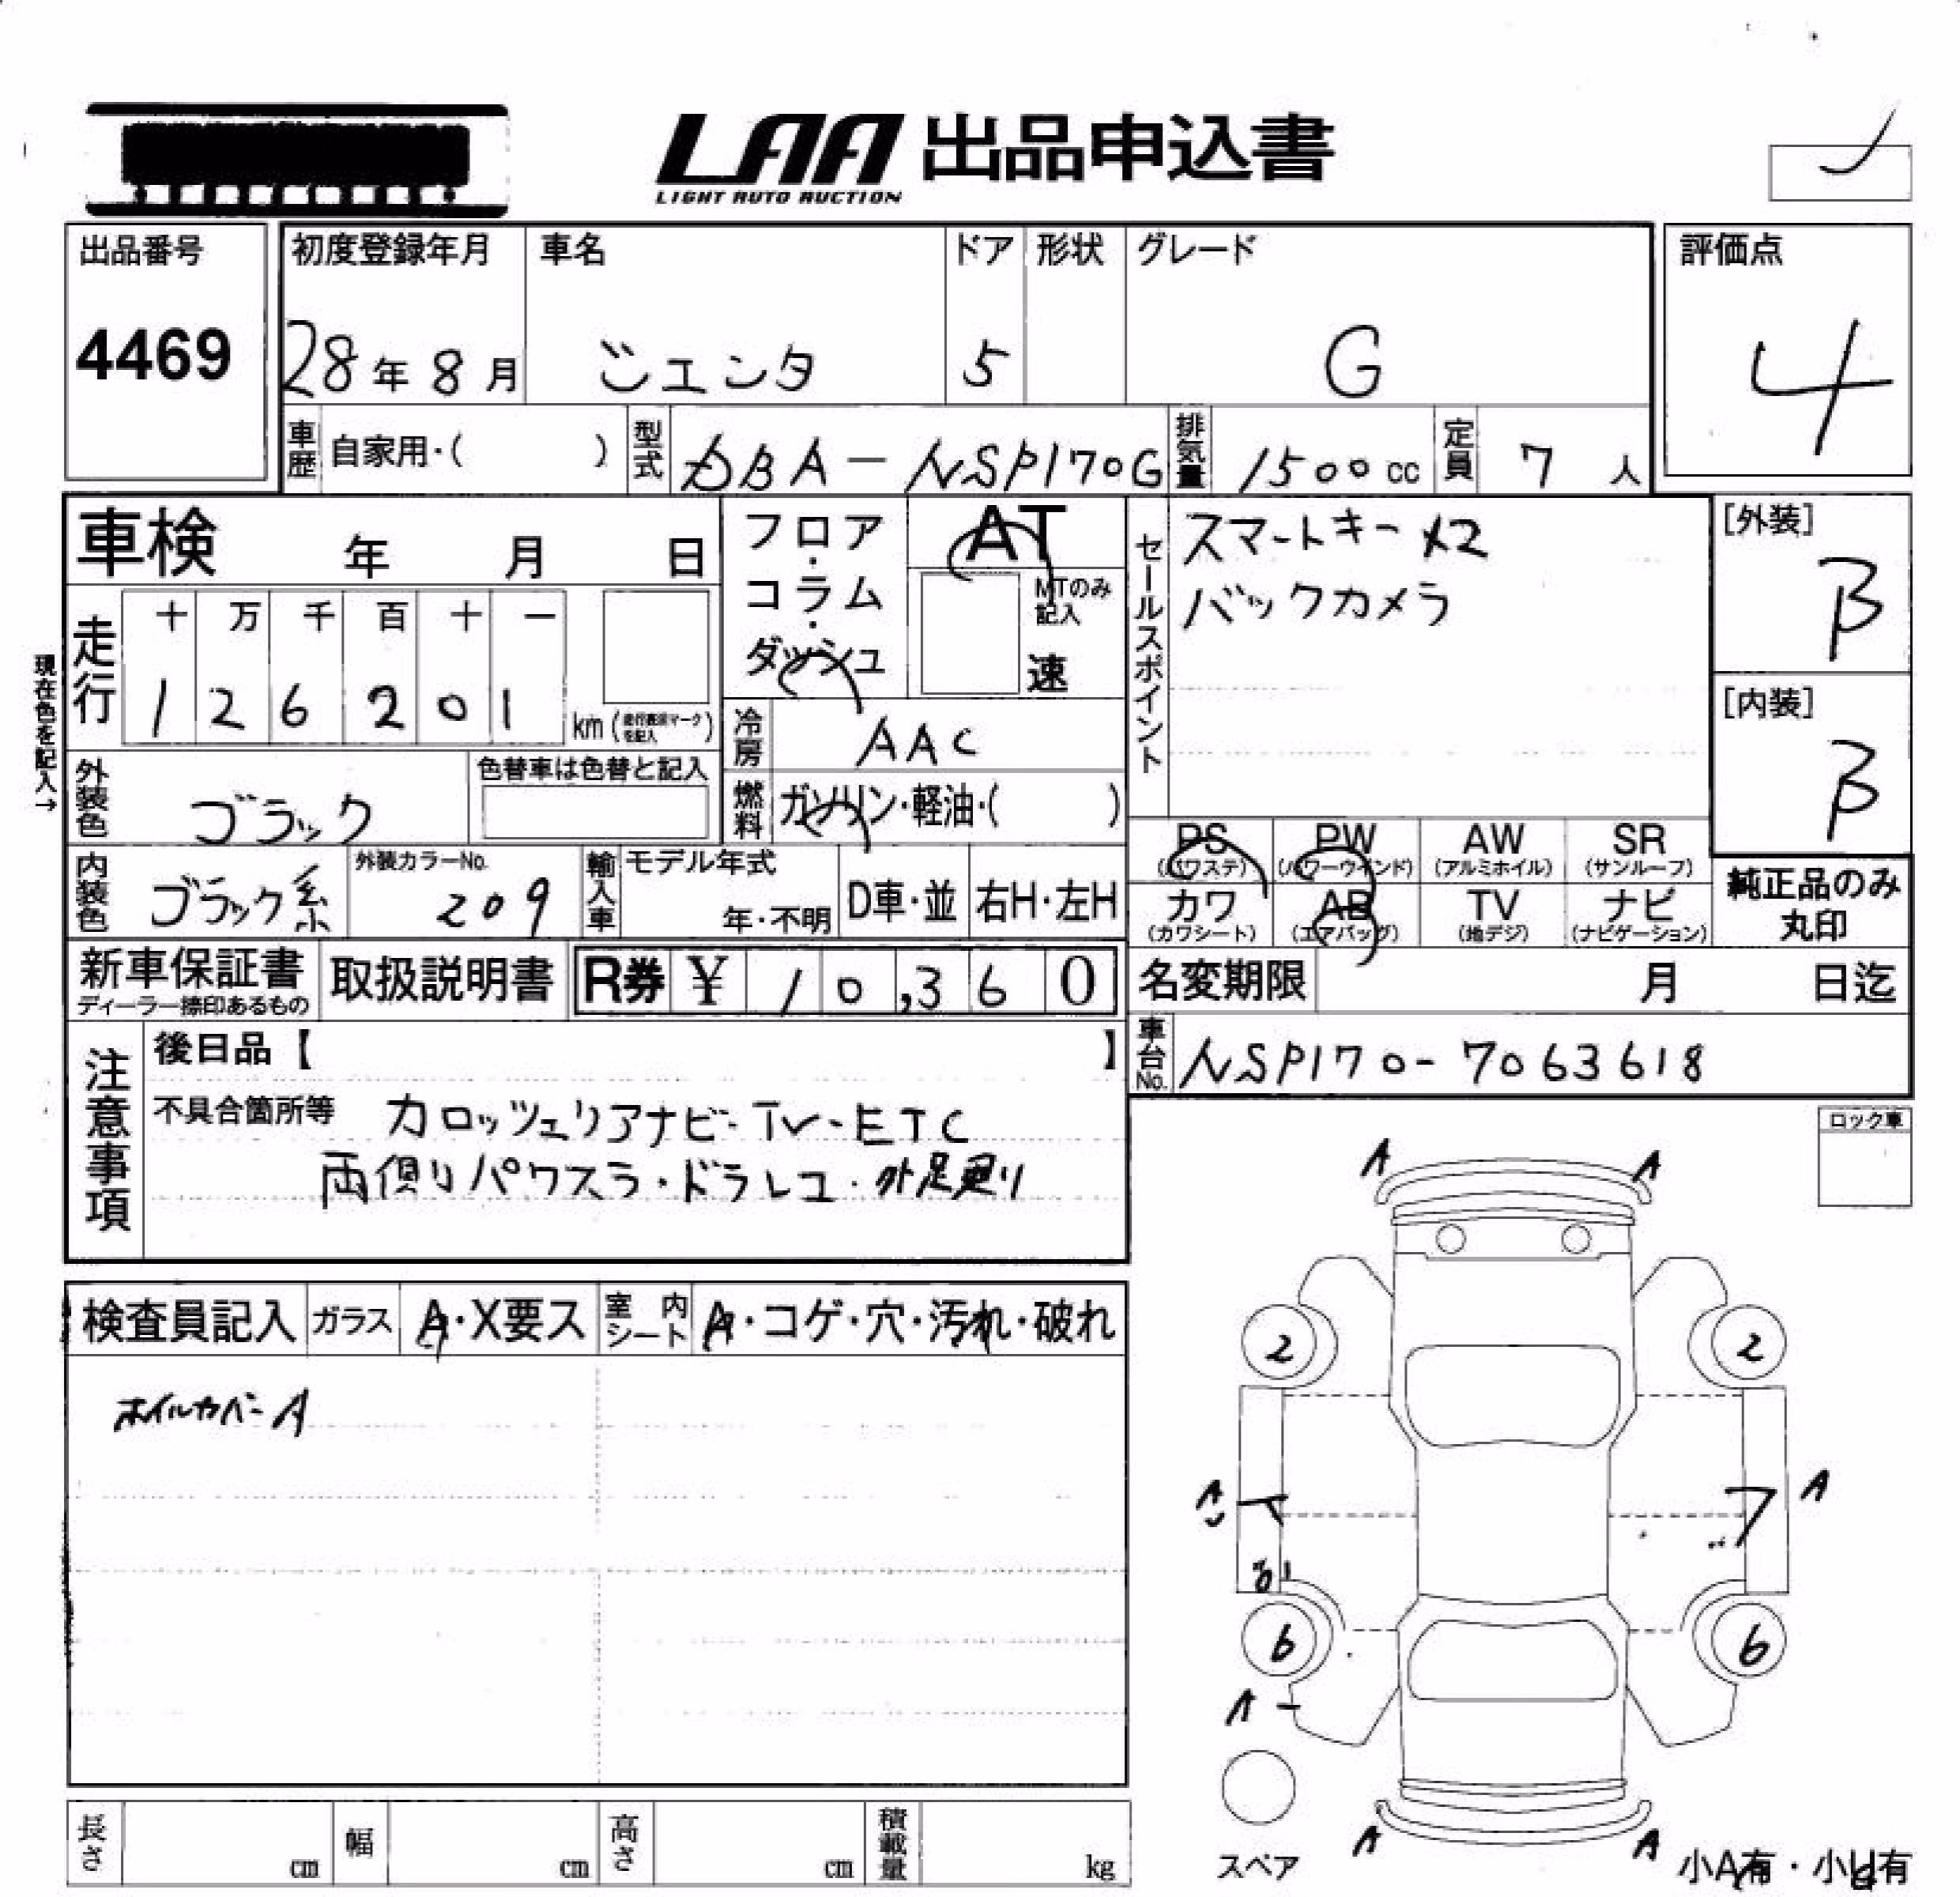 LAA 出品申込書
LIGHT AUTO AUCTION
出品番号
4469
初度登録年月
28年8月
車名
シエンタ
ドア
5
形状
グレード
G
評価点
4
車歴 自家用・( )
型式 DBA-NSP170G
排気量 1500cc
定員 7人
車検 年 月 日
フロア・コラム・ダッシュ
AT
MTのみ記入
速
セールスポイント
スマートキー×2
バックカメラ
[外装]
B
[内装]
B
現在色を記入→
走行
十 万 千 百 十 一
1 2 6 2 0 1
km(走行表示マークを記入)
冷房 AAC
外装色 ブラック
色替車は色替と記入
燃料 ガソリン・軽油・( )
内装色 ブラック系
外装カラーNo. 209
輸入車 モデル年式
年・不明
D車・並
右H・左H
PS (パワステ)
PW (パワーウインド)
AW (アルミホイル)
SR (サンルーフ)
カワ (カワシート)
AB (エアバッグ)
TV (地デジ)
ナビ (ナビゲーション)
純正品のみ丸印
新車保証書
ディーラー捺印あるもの
取扱説明書
R券 ¥ 10,360
名変期限 月 日迄
車台No. NSP170-7063618
注意事項
後日品【 】
不具合箇所等 カロッツェリアナビ・TV・ETC
両側リパワスラ・ドラレコ・外足廻り
ロック車
検査員記入
ガラス A・X要ス
室内シート A・コゲ・穴・汚れ・破れ
ホイルカバーA
A A
2 2
A A
6 6
A
A A
スペア
小A有・小U有
長さ cm
幅 cm
高さ cm
積載量 kg